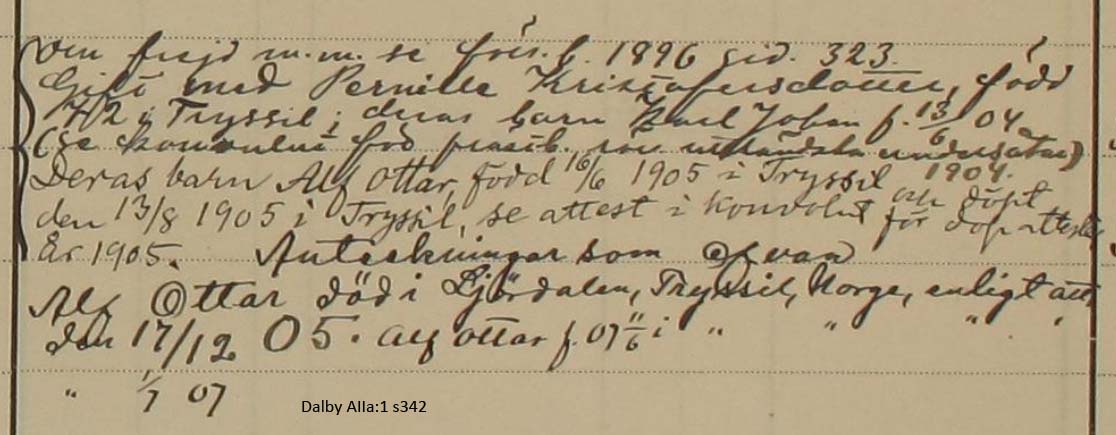 Om frejd m.m. se förs.b. 1896 sid. 323.
Gift med Pernille Kristofersdotter, född
7/2 i Tryssil; deras barn Karl Johan f. 13/6 04
(se konvolut för utländska undersåtar) 1904.
Deras barn Alf Ottar, född 16/6 1905 i Tryssil och döpt
den 13/8 1905 i Tryssil, se attest i konvolut för dopattester
År 1905. Anteckningar som ofvan
Alf Ottar död i Ljördalen, Tryssil, Norge, enligt att.
den 17/12 05. Alf Ottar f. 07 11/6 i " " " "
" 1/7 07
Dalby AIIa:1 s342